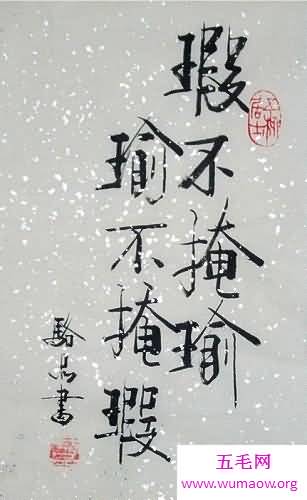 瑕不掩瑜
瑜不掩瑕
書
五毛网
www.wumaow.org